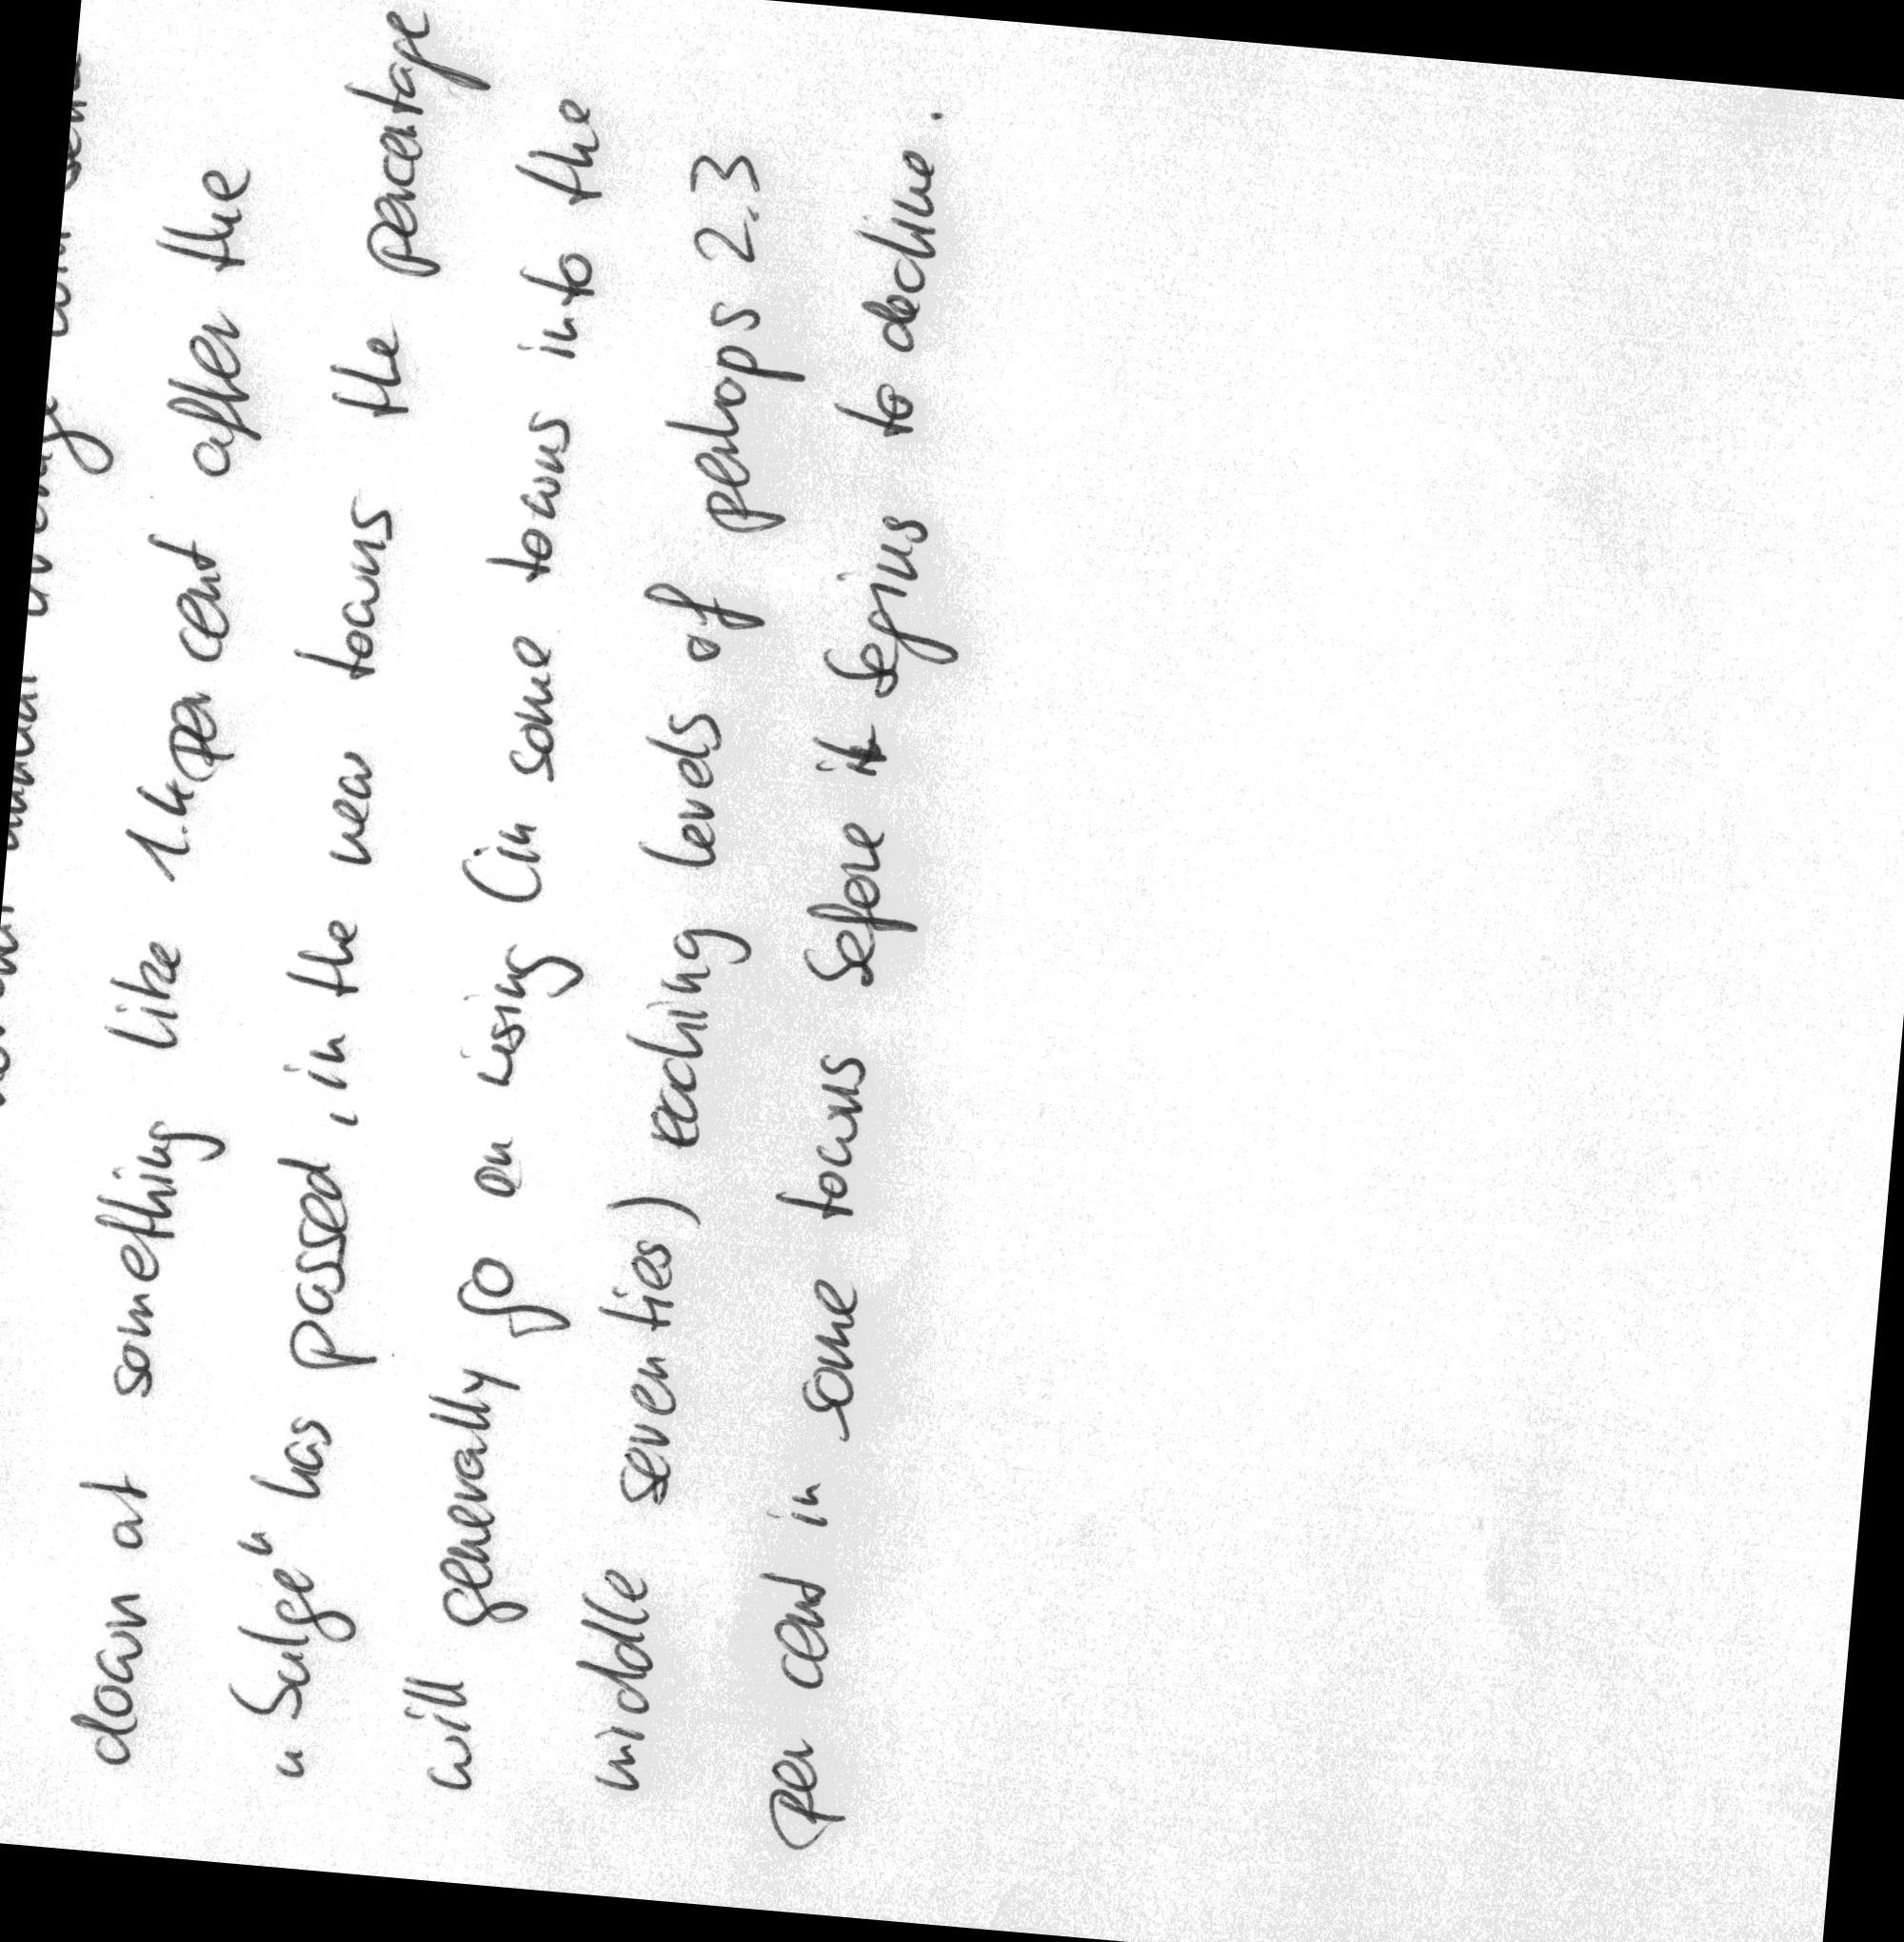 down at something like 1.4 per cent after the
"bulge" has passed, in the new towns the percentage
will generally go on rising (in some towns into the
middle seventies) reaching levels of perhaps 2.3
per cent in some towns before it begins to decline.